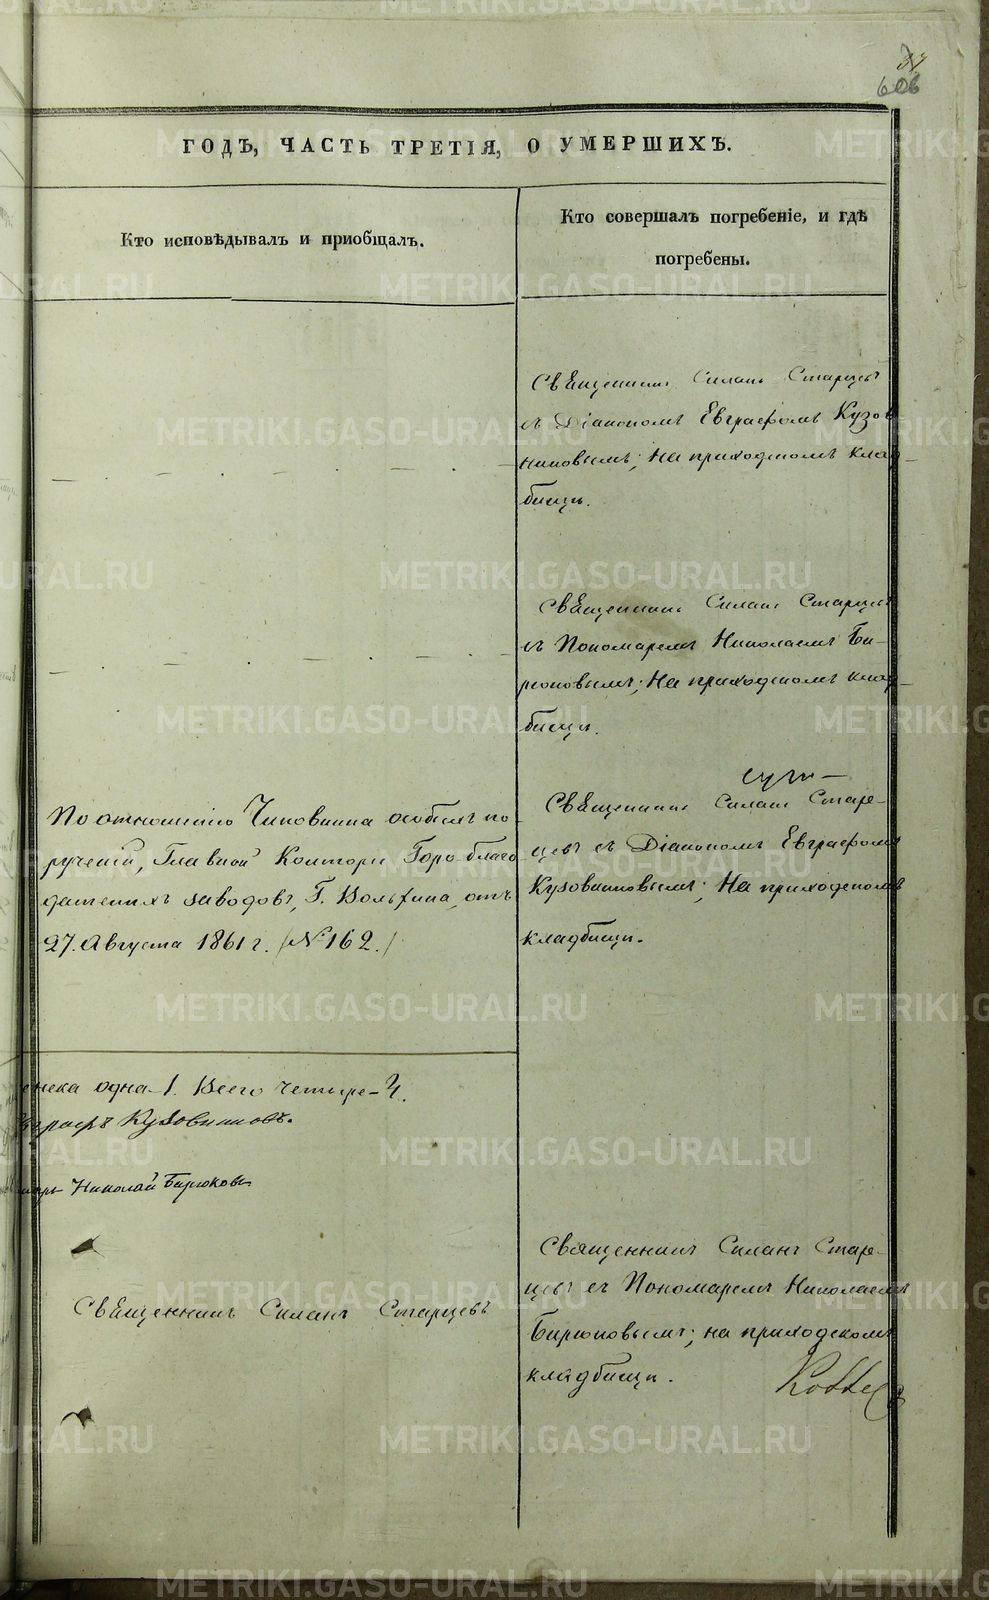 606
ГОДЪ, ЧАСТЬ ТРЕТІЯ, О УМЕРШИХЪ.
Кто исповѣдывалъ и приобщалъ.
Кто совершалъ погребеніе, и гдѣ
погребены.
Священникъ Силанъ Старцевъ
съ Діакономъ Евграфомъ Кузов
никовымъ; На приходскомъ клад-
бищѣ.
Священникъ Силанъ Старцевъ
съ Пономаремъ Николаемъ Би-
рюковымъ; На приходскомъ клад-
бищѣ.
По отношенію Чиновника особыхъ по-
рученій, Главной Конторы Горо-благо
датскихъ заводовъ, Г. Вольхина, отъ
27. Августа 1861 г. (№ 162.)
Священникъ Силанъ Старе-
цевъ съ Діакономъ Евграфомъ
Кузовниковымъ; На приходскомъ
кладбищѣ.
енска одна-1. Всего четыре-4.
вграфъ Кузовниковъ.
марь Николай Бирюковъ
Священникъ Силанъ Старцевъ
Священникъ Силанъ Старе-
цевъ съ Пономаремъ Николаемъ
Бирюковымъ; на приходскомъ
кладбищѣ.
METRIKI.GASO-URAL.RU